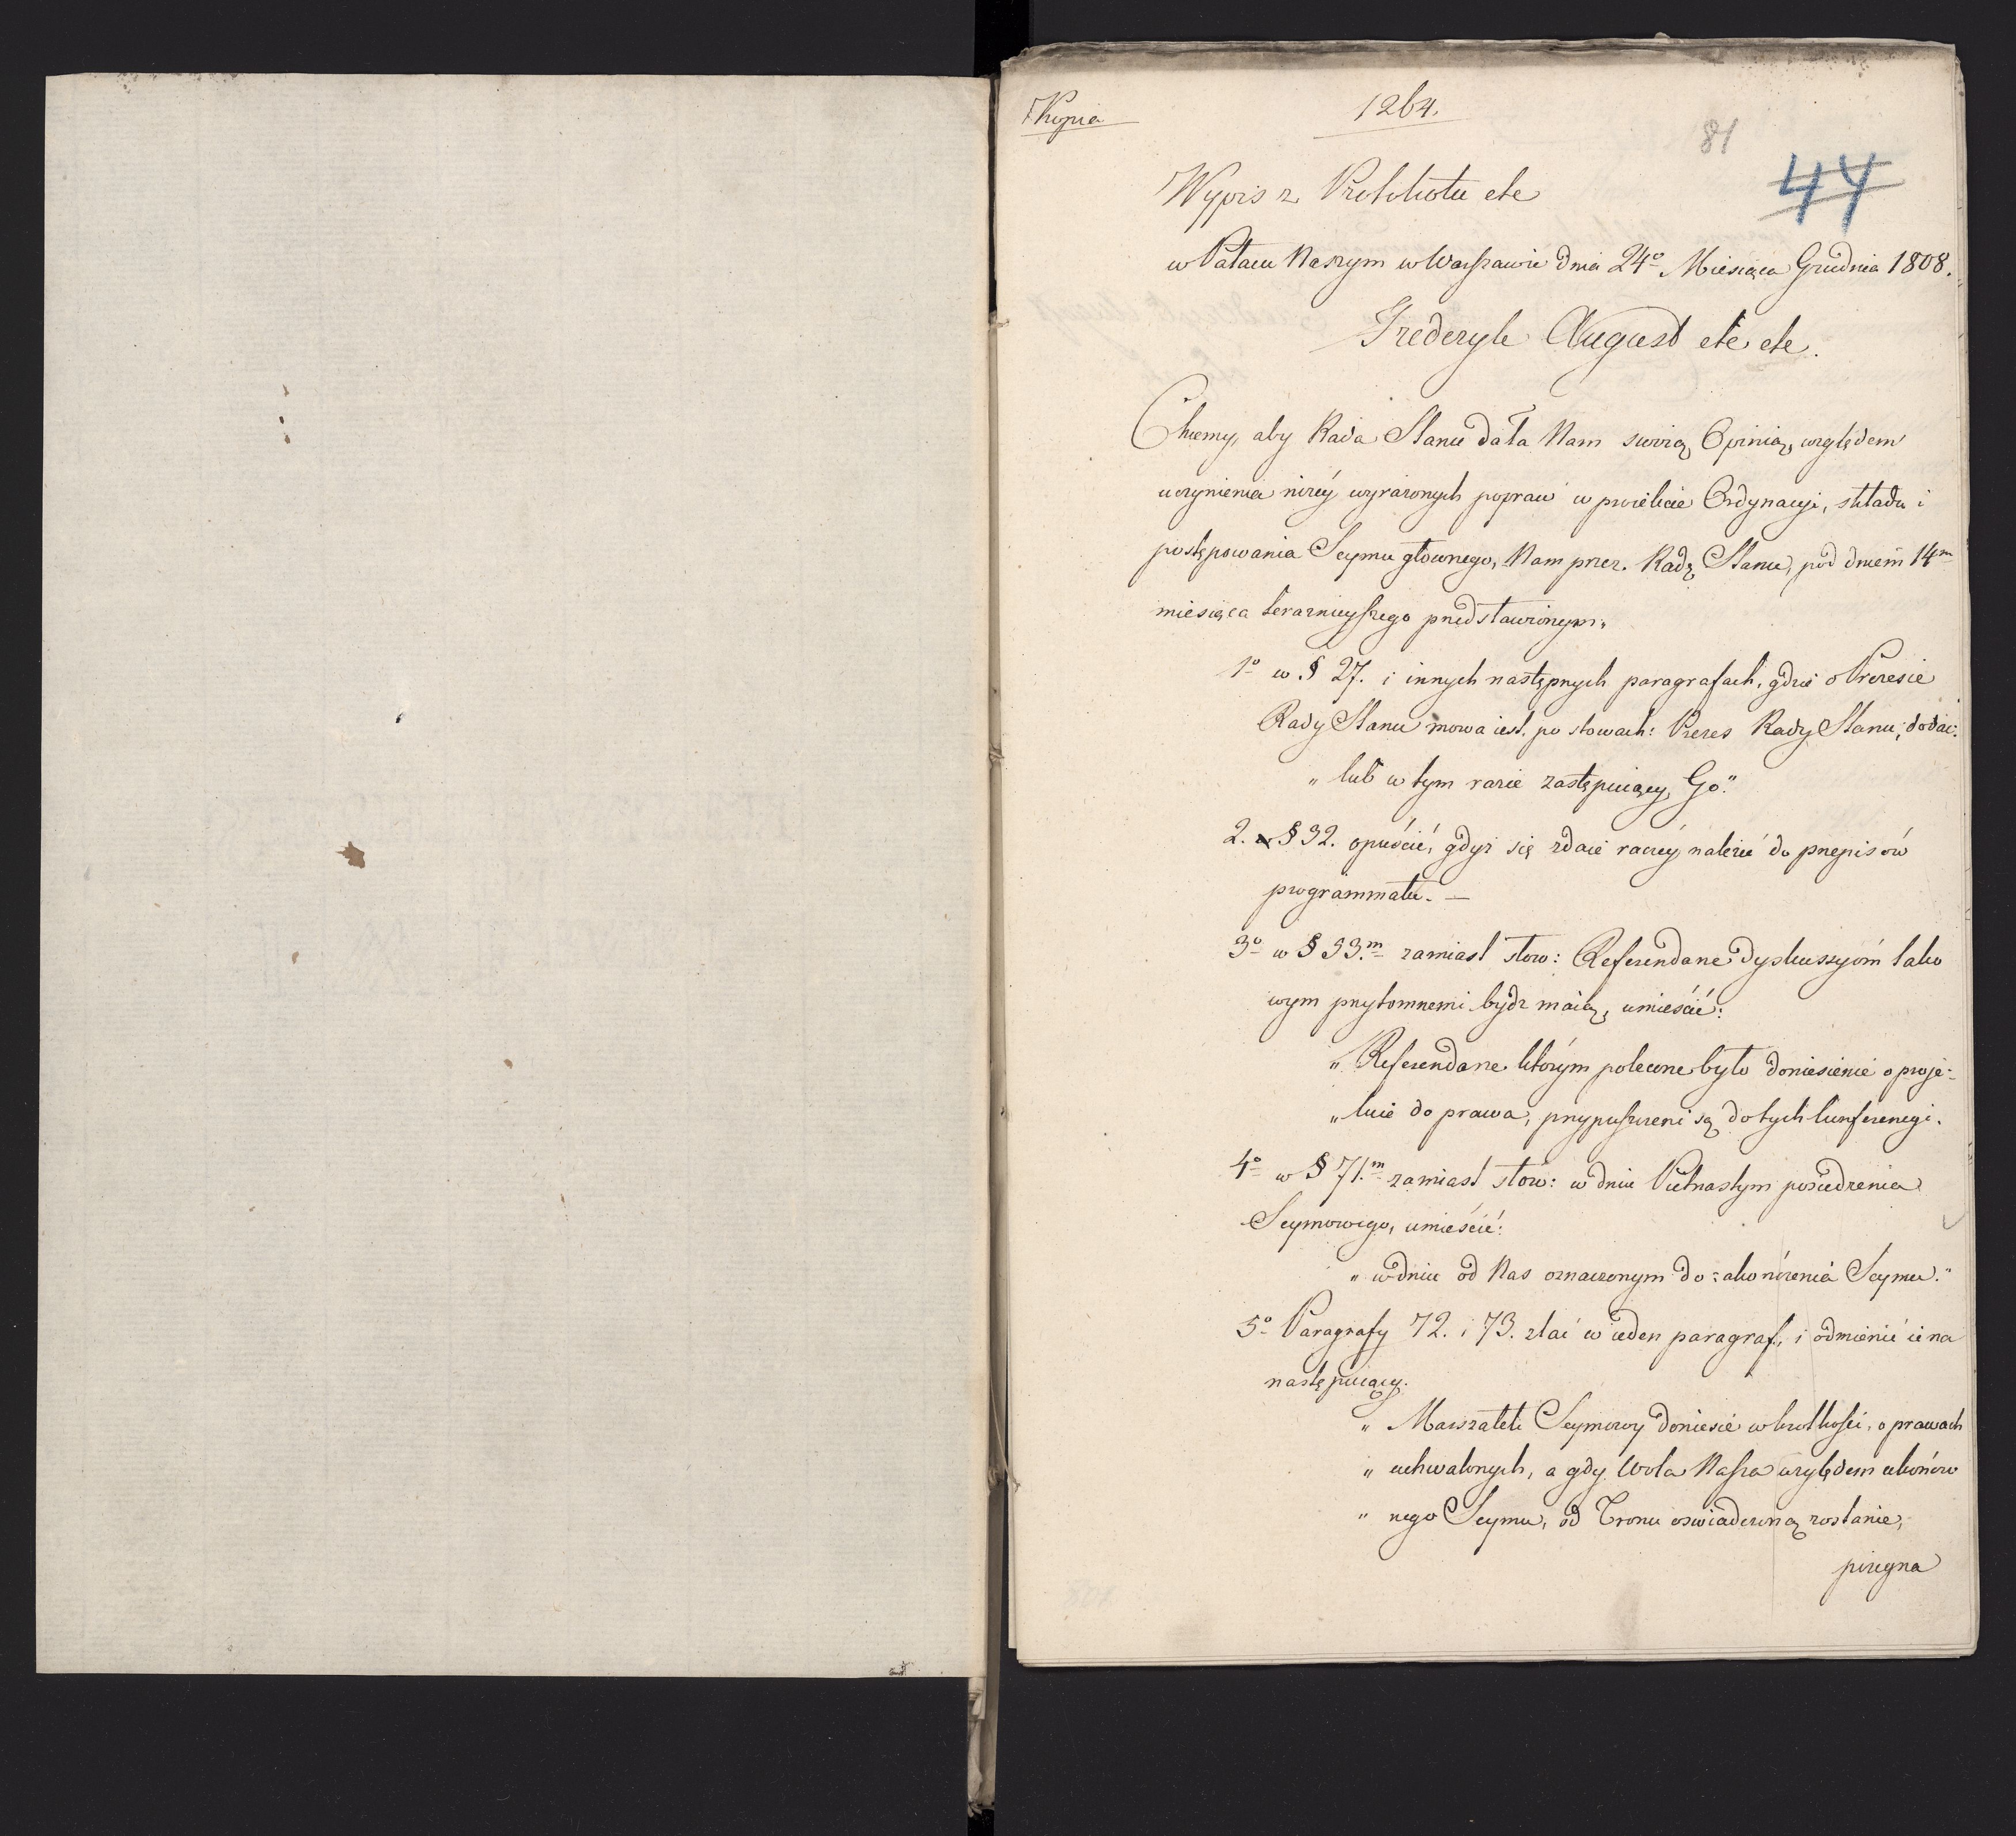 Kopia
1264.
81
44
Wypis z Protokołu etc
w Pałacu Naszym w Warszawie dnia 24º Miesiąca Grudnia 1808.
Frederyk August etc etc.
Chcemy, aby Rada Stanu dała Nam swoią Opinią, względem
uczynienia niżey wyrażonych popraw w proiekcie Ordynacyi, składu i
postępowania Seymu głownego, Nam przez Radę Stanu, pod dniem 14m
miesiąca terażnieyszego przedstawionym.
1º w § 27. i innych następnych paragrafach, gdzie o Prezesie
Rady Stanu mowa iest, po słowach: Prezes Rady Stanu; dodać:
„ lub w tym razie zastępuiący Go."
2. § 32. opuścić, gdyż się zdaie raczéy należeć do przepisów
programmatu. —
3º w § 33.m zamiast słow: Referendarze dyskussyóm tako
wym przytomnemi bydź maią, umieścić:
„ Referendarze którym polecone było doniesienie o proje-
„ kcie do prawa, przypuszczeni są do tych konferencyi.
4º w § 71.m zamiast słów: w dniu Pietnastym posiedzenia
Seymowego, umieścić:
„ w dniu od Nas oznaczonym do zakończenia Seymu."
5º Paragrafy 72. i 73. zlać w ieden paragraf, i odmienić ie na
następuiący.
„ Marszałek Seymowy doniesie w krotkości, o prawach
„ uchwalonych, a gdy Wola Nasza względem ukończo
„ nego Seymu, od Tronu oswiadczoną zostanie,
pożegna